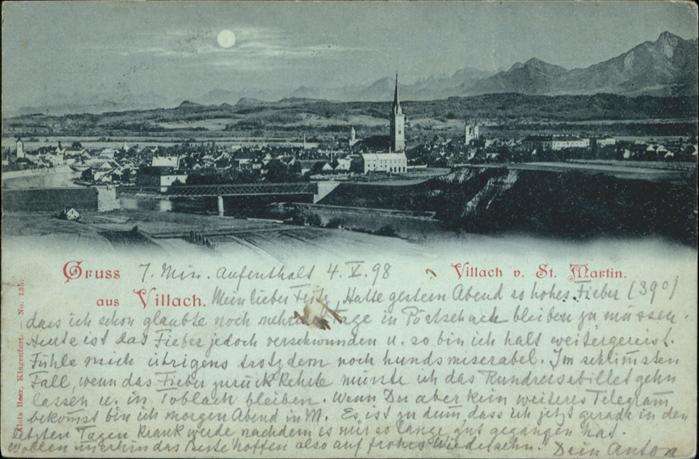 Gruss
aus Villach.
Villach v. St. Martin.
7. Min. Aufenthalt 4. V. 98
Mein lieber Fritz, Hatte gestern Abend so hohes Fieber (39°)
dass ich schon glaubte noch mehrere Tage in Pörtschach bleiben zu müssen.
Heute ist das Fieber jedoch verschwunden u. so bin ich halt weitergereist.
Fühle mich übrigens trotzdem noch hundsmiserabel. Im schlimmsten
Fall, wenn das Fieber zurückkehrte müsste ich das Rundreisebillet gehn
lassen u. in Toblach bleiben. Wenn Du aber kein weiteres Telegram
bekomst bin ich morgen Abend in M. Es ist zu dumm, dass ich jetzt gerade in den
letzten Tagen krank werde nachdem es mir so lange gut gegangen hat.
Wollen das Beste hoffen also auf frohes Wiedersehn. Dein Anton